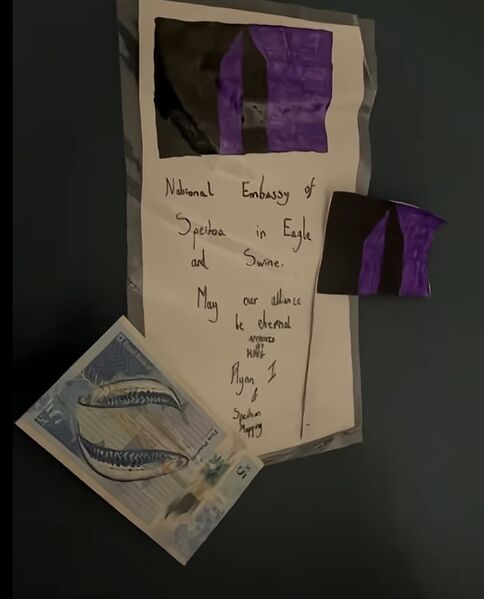 National Embassy of
Speihoa in Eagle
and Swine.
May our alliance
be eternal
APPROVED
BY
KING
Flynn I
&
Speihan
Mapping
Five Pounds
£5
£5